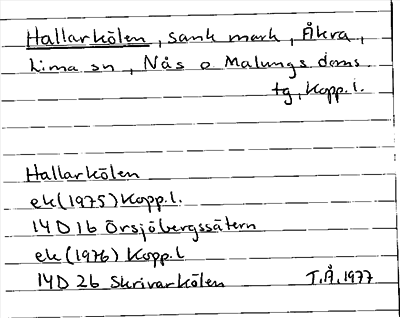 Hallarkölen, sank mark, Åkra,
Lima sn, Nås o Malungs doms
tg, Kopp.l.
Hallarkölen
ek(1975)Kopp.l.
14D 1b Örsjöbergssätern
ek(1976)Kopp.l
14D 2b Skrivarkölen T.Å. 1977